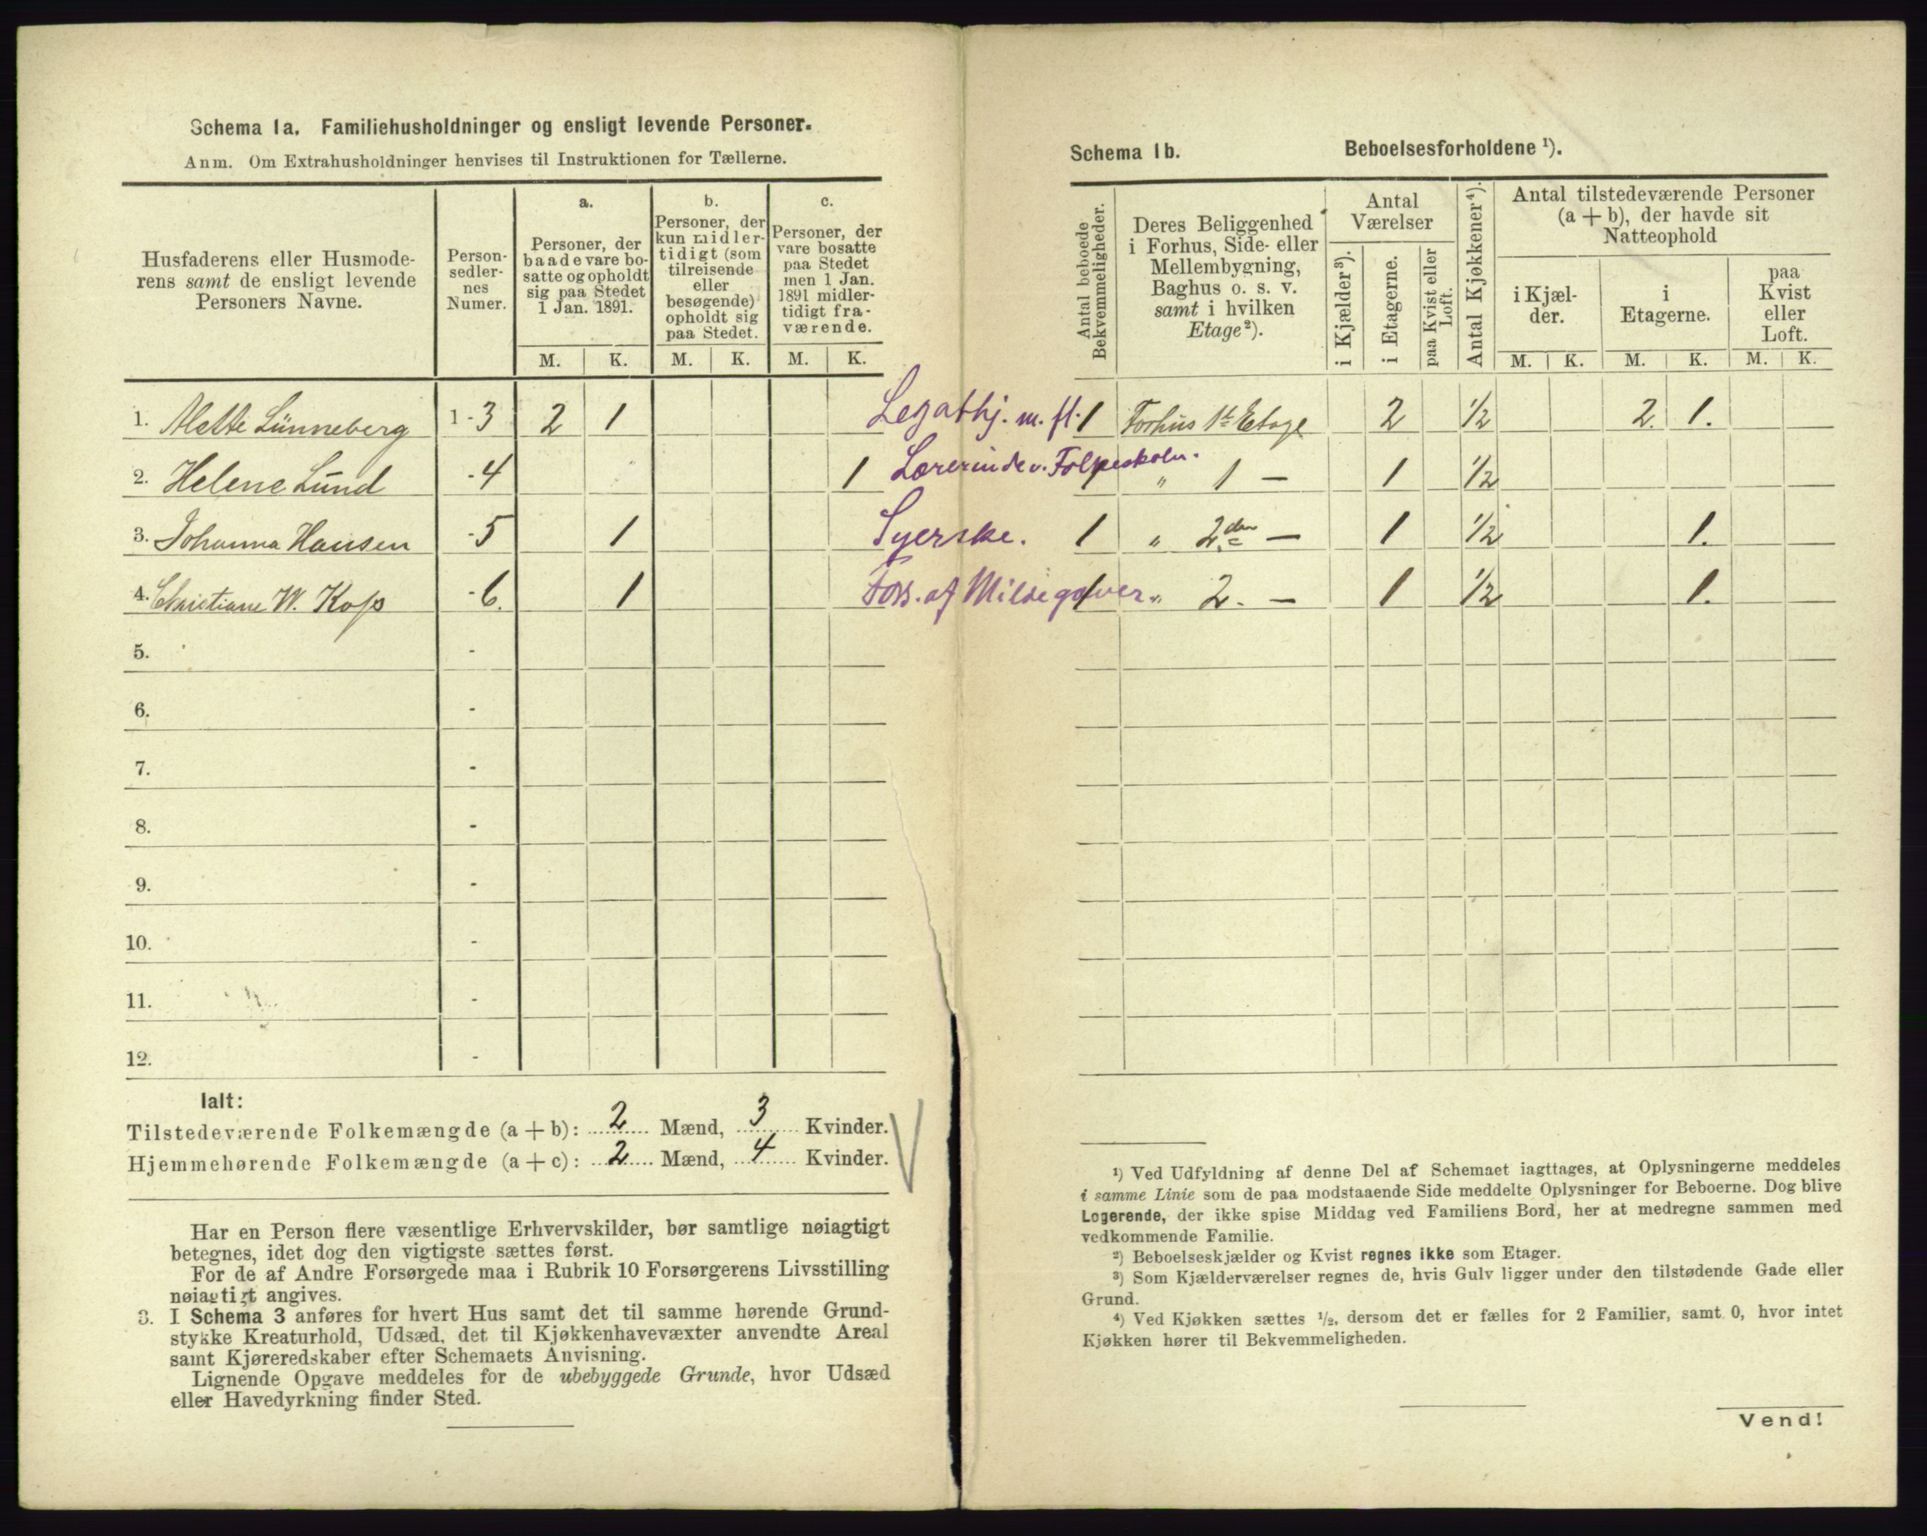 Schema 1a. Familiehusholdninger og ensligt levende Personer.
Anm. Om Extrahusholdninger henvises til Instruktionen for Tællerne.
Husfaderens eller Husmoderens samt de ensligt levende Personers Navne.
Person-sedler-nes Numer.
a.
Personer, der baade vare bosatte og opholdt sig paa Stedet 1 Jan. 1891.
b.
Personer, der kun midlertidigt (som tilreisende eller besøgende) opholdt sig paa Stedet.
c.
Personer, der vare bosatte paa Stedet men 1 Jan. 1891 midlertidigt fraværende.
M. K. M. K. M. K.
1. Mette Lünneberg 1-3 2 1
2. Helene Lund -4 1
3. Johanna Hansen -5 1
4. Christiane W. Kofs -6. 1
5. -
6. -
7. -
8. -
9. -
10. -
11. -
12. -
Ialt:
Tilstedeværende Folkemængde (a + b): 2 Mænd, 3 Kvinder.
Hjemmehørende Folkemængde (a + c): 2 Mænd, 4 Kvinder.
Har en Person flere væsentlige Erhvervskilder, bør samtlige nøiagtigt
betegnes, idet dog den vigtigste sættes først.
For de af Andre Forsørgede maa i Rubrik 10 Forsørgerens Livsstilling
nøiagtigt angives.
3. I Schema 3 anføres for hvert Hus samt det til samme hørende Grund-
stykke Kreaturhold, Udsæd, det til Kjøkkenhavevæxter anvendte Areal
samt Kjøreredskaber efter Schemaets Anvisning.
Lignende Opgave meddeles for de ubebyggede Grunde, hvor Udsæd
eller Havedyrkning finder Sted.
Schema 1b. Beboelsesforholdene ¹).
Antal beboede Bekvemmeligheder.
Deres Beliggenhed i Forhus, Side- eller Mellembygning, Baghus o. s. v. samt i hvilken Etage²).
Antal Værelser
i Kjælder³).
i Etagerne.
paa Kvist eller Loft.
Antal Kjøkkener⁴).
Antal tilstedeværende Personer (a + b), der havde sit Natteophold
i Kjælder.
i Etagerne.
paa Kvist eller Loft.
M. K. M. K. M. K.
Legathj. m. fl. 1 Forhus 1te Etage 2 ½ 2. 1.
Lærerinde v. Folkeskolen. 1 „ 1 — 1 ½
Syerske. 1 „ 2.den — 1 ½ 1.
Fors. af Milde gaver. 1 „ 2. — 1 ½ 1.
¹) Ved Udfyldning af denne Del af Schemaet iagttages, at Oplysningerne meddeles
i samme Linie som de paa modstaaende Side meddelte Oplysninger for Beboerne. Dog blive
Logerende, der ikke spise Middag ved Familiens Bord, her at medregne sammen med
vedkommende Familie.
²) Beboelseskjælder og Kvist regnes ikke som Etager.
³) Som Kjælderværelser regnes de, hvis Gulv ligger under den tilstødende Gade eller
Grund.
⁴) Ved Kjøkken sættes ½, dersom det er fælles for 2 Familier, samt 0, hvor intet
Kjøkken hører til Bekvemmeligheden.
Vend!